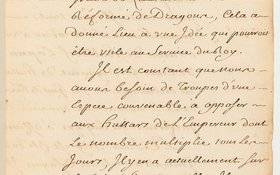 Réformé de Dragons, Cela a
donné Lieu a vne Idée qui pourroit
être vtile au Service du Roy.
Il est constant que nous
auons besoin de Troupes d'vne
Espece conuenable, a opposer
aux hussars de L'Empereur dont
le nombre multiplie tous les
Jours, Il y en a actuellement sur